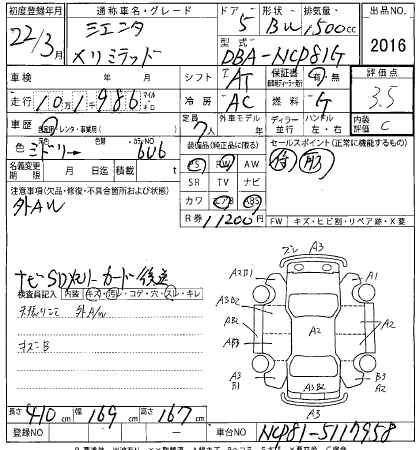 初度登録年月 通称車名・グレード ドア 形状 排気量 出品NO.
22/3月 シエンタ 5 Bu 1,500cc 2016
型式
DBA-NCP81G
車検 年 月 シフト AT 保証書 有・無 評価点
3.5
走行 10万1千986 マイル キロ 冷房 AC 燃料 G
車歴 自家用・レンタ・事業用( ) 定員 7人 外車モデル 年 ディーラー 並行 ハンドル 左・右 内装評価 C
色 ミドリー 色替 カラーNO 6U6 装備品(純正品に限る) セールスポイント(正常に機能するもの)
PS PW AW
名義変更期限 月 日迄 積載 t
SR TV ナビ
カワ エアB ABS
注意事項(欠品・修復・不具合箇所および状態)
外AW
R券 11200円 FW キズ・ヒビ割・リペア跡・X
ナビSDメモリーカード後送
検査員記入 内装 キズ・汚レ・コゲ・穴・スレ・キレ
外A/W
キズB
A3
A2B1 A1
A3B2
AB2 A2 A2
AB3
A3 B1 B3 A2
A3B2
A3
長さ 410cm 幅 169cm 高さ 167cm
登録NO 車台NO NCP81-5117958